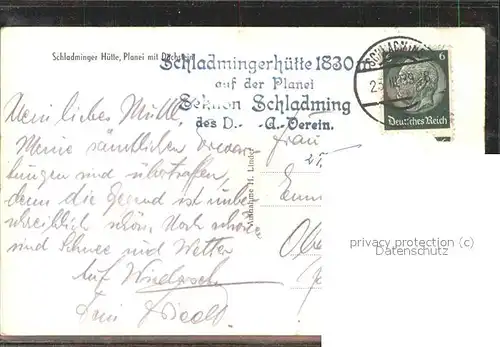 Schladminger Hütte, Planei mit Dachstein
Schladmingerhütte 1830
auf der Planei
Sektion Schladming
des D. A. Verein.
SCHLADMING
6
Deutsches Reich
Mein liebes
Meine sämtlichen Erwar-
tungen sind übertroffen,
denn die Gegend ist unbe-
schreiblich schön. Noch schöner
sind Schnee und Wetter
Auf Wiedersehn
Dein
Frau
Aufnahme H. Linder
privacy protection (c)
Datenschutz